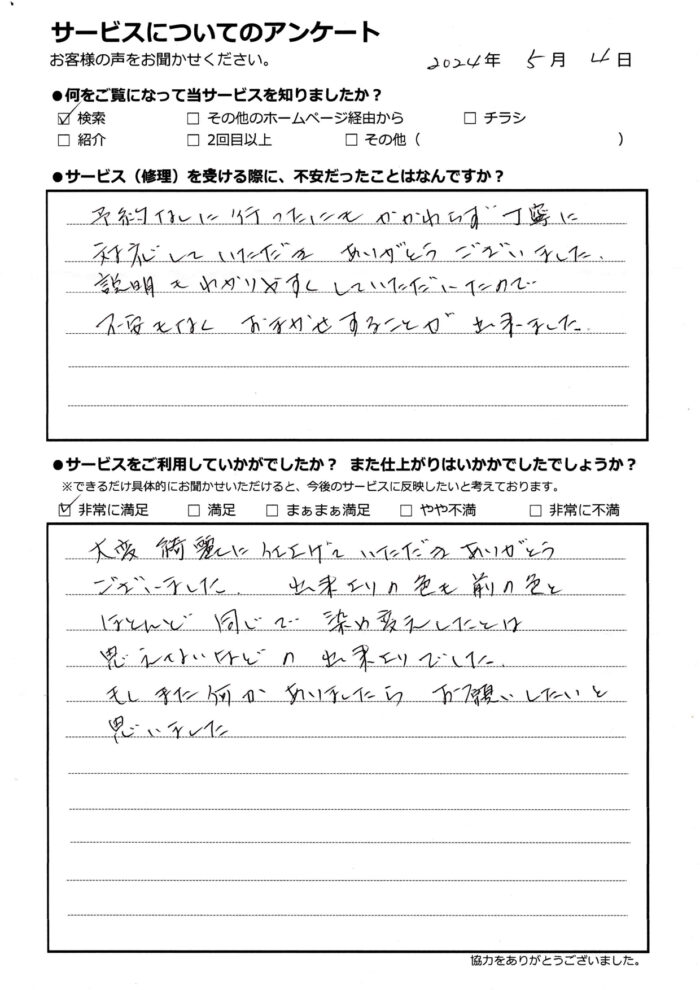 サービスについてのアンケート
お客様の声をお聞かせください。
2024年 5月 4日
●何をご覧になって当サービスを知りましたか？
☑ 検索 □ その他のホームページ経由から □ チラシ
□ 紹介 □ 2回目以上 □ その他（ ）
●サービス（修理）を受ける際に、不安だったことはなんですか？
予約なしに行ったにもかかわらず丁寧に
対応していただき ありがとうございました.
説明もわかりやすくしていただいたので
不安もなく おまかせすることが 出来ました.
●サービスをご利用していかがでしたか？ また仕上がりはいかかでしたでしょうか？
※できるだけ具体的にお聞かせいただけると、今後のサービスに反映したいと考えております。
☑ 非常に満足 □ 満足 □ まぁまぁ満足 □ やや不満 □ 非常に不満
大変 綺麗に仕上げて いただき ありがとう
ございました. 出来上りの色も前の色と
ほとんど 同じで 染め変えしたとは
思えないほどの 出来上りでした.
もしまた何かありましたら お願いしたいと
思いました
協力をありがとうございました。